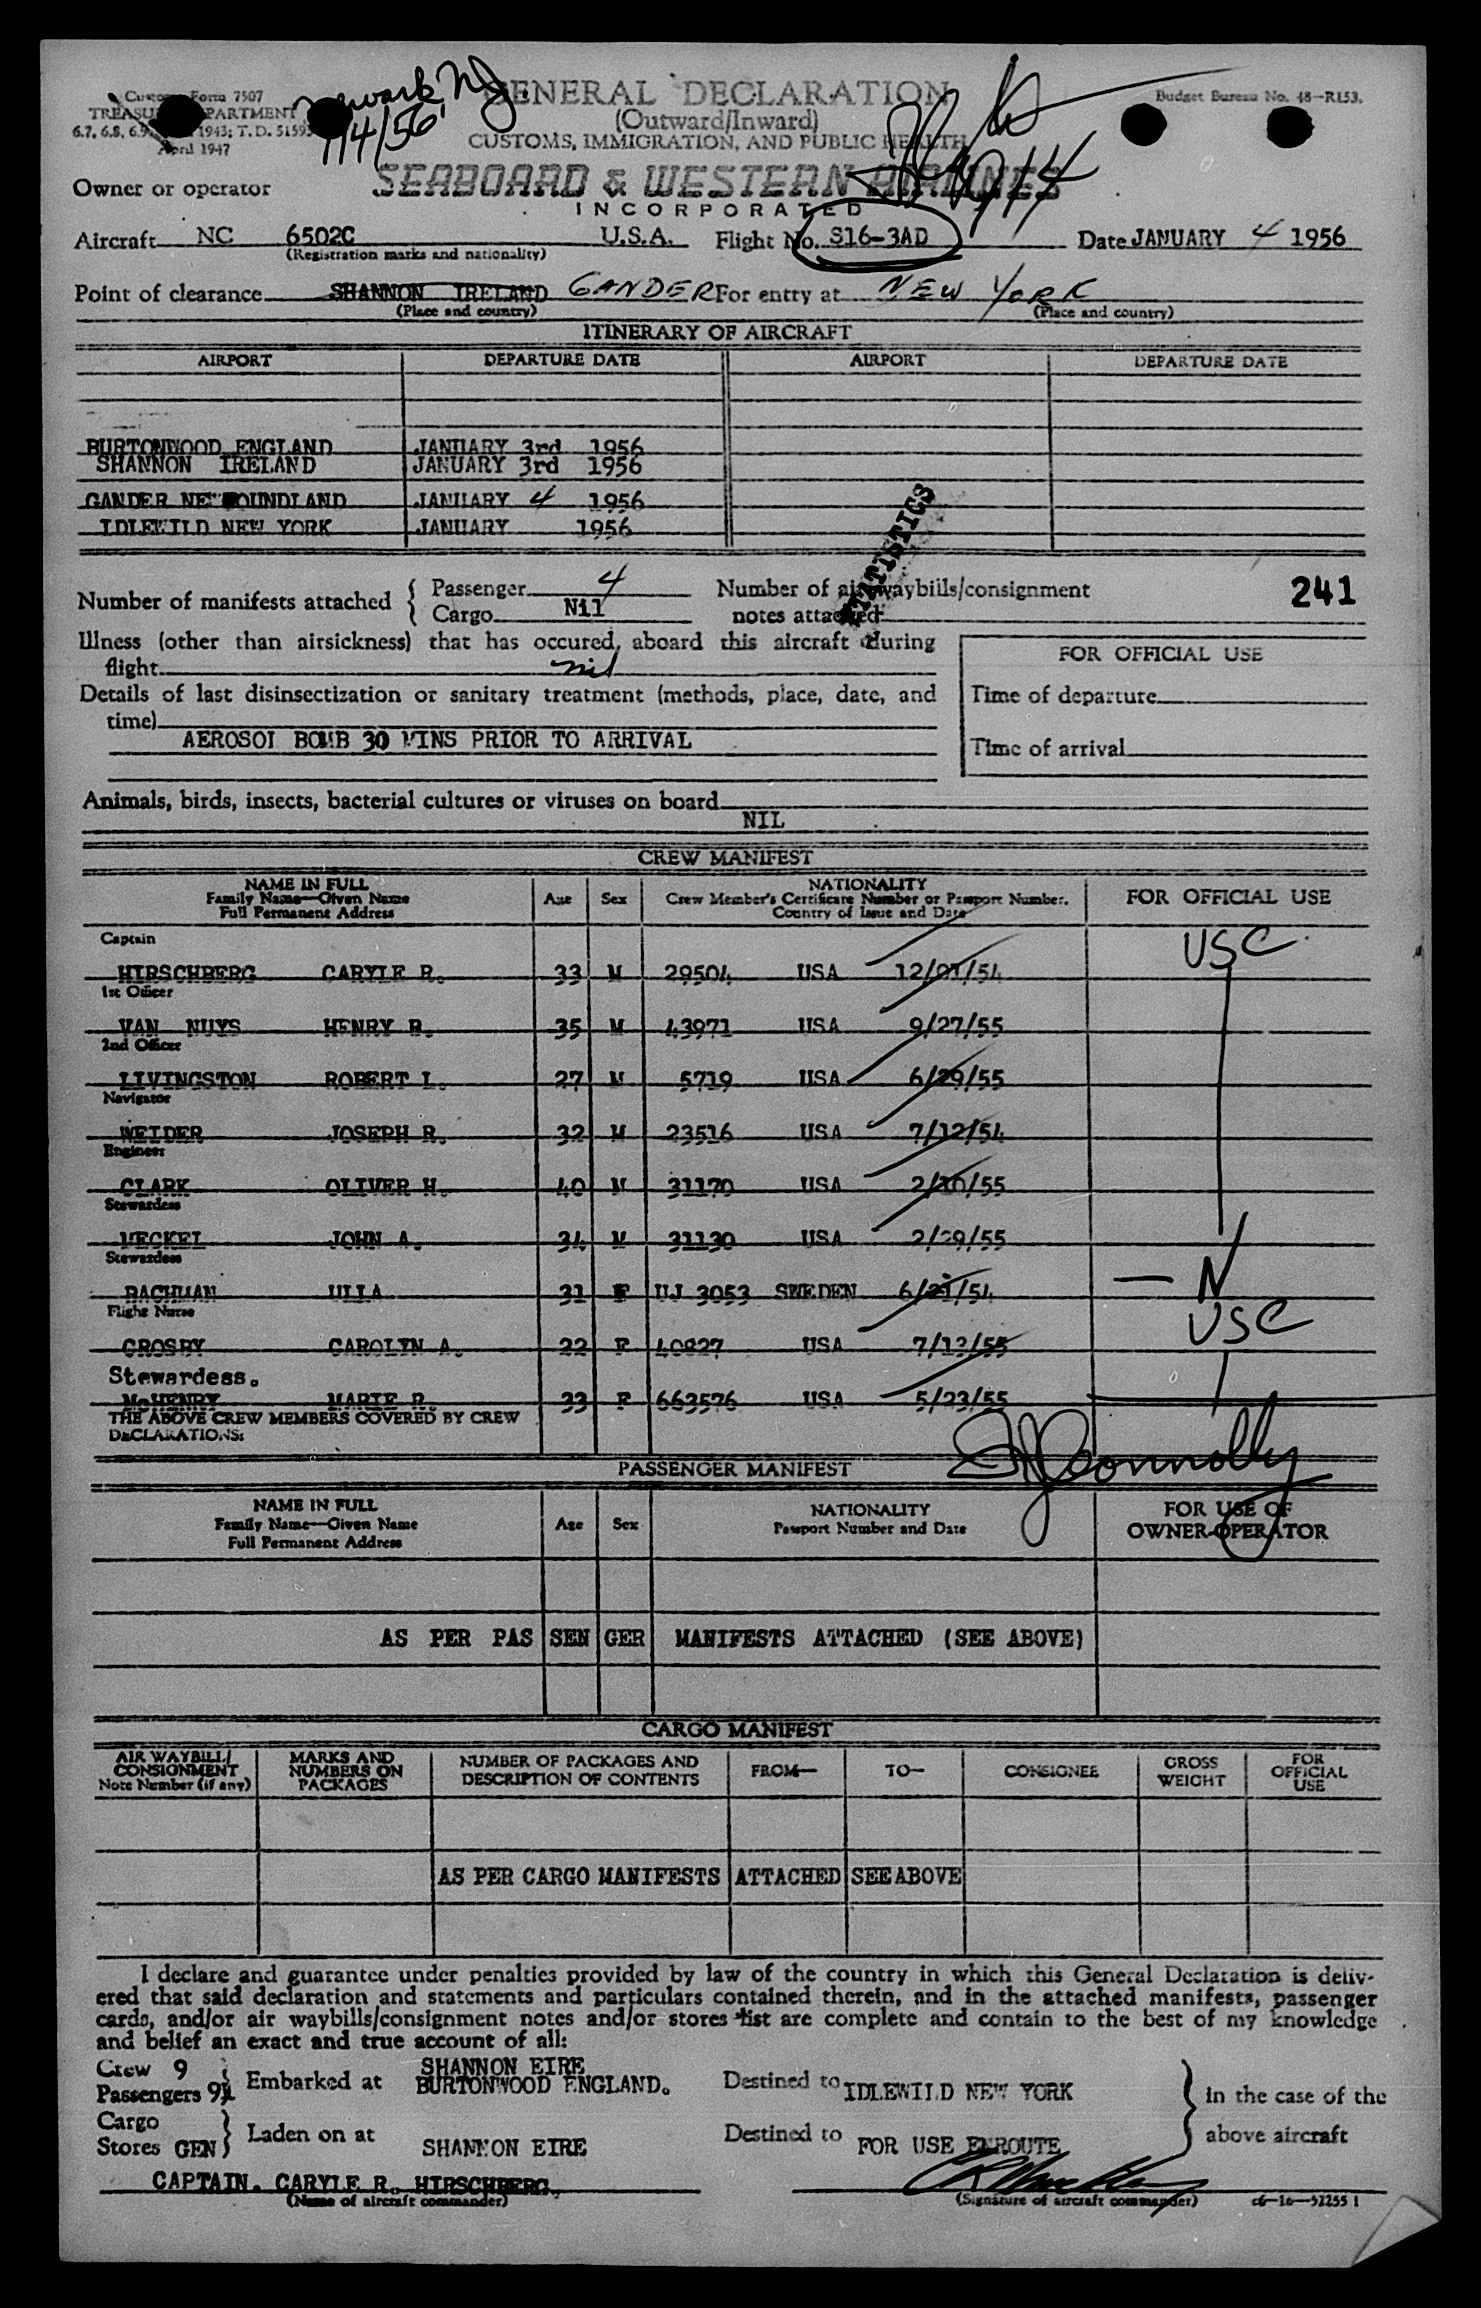 Customs Form 7507
TREASURY DEPARTMENT
1943; T.D. 51593
April 1947
Newark NJ
1/4/56
GENERAL DECLARATION
(Outward/Inward)
CUSTOMS, IMMIGRATION, AND PUBLIC HEALTH
Budget Bureau No. 48-R153.
Owner or operator SEABOARD & WESTERN AIRLINES
INCORPORATED
Aircraft NC 6502C U.S.A. Flight No. S16-3AD Date JANUARY 4 1956
(Registration marks and nationality)
Point of clearance SHANNON IRELAND GANDER For entry at NEW YORK
(Place and country) (Place and country)
ITINERARY OF AIRCRAFT
AIRPORT DEPARTURE DATE AIRPORT DEPARTURE DATE
BURTONWOOD ENGLAND JANUARY 3rd 1956
SHANNON IRELAND JANUARY 3rd 1956
GANDER NEWFOUNDLAND JANUARY 4 1956
IDLEWILD NEW YORK JANUARY 1956
STATISTICS
Number of manifests attached { Passenger 4 Number of air waybills/consignment 241
Cargo Nil notes attached
Illness (other than airsickness) that has occured, aboard this aircraft during
flight nil
FOR OFFICIAL USE
Details of last disinsectization or sanitary treatment (methods, place, date, and
time)
Time of departure
AEROSOL BOMB 30 MINS PRIOR TO ARRIVAL
Time of arrival
Animals, birds, insects, bacterial cultures or viruses on board
NIL
CREW MANIFEST
NAME IN FULL
Family Name—Given Name
Full Permanent Address
Age Sex
NATIONALITY
Crew Member's Certificate Number or Passport Number.
Country of Issue and Date
FOR OFFICIAL USE
Captain
HIRSCHBERG CARYLE R. 33 M 29504 USA 12/21/54 USC
1st Officer
VAN NUYS HENRY B. 35 M 43971 USA 9/27/55
2nd Officer
LIVINGSTON ROBERT L. 27 M 5719 USA 6/29/55
Navigator
WEIDER JOSEPH R. 32 M 23516 USA 7/12/54
Engineer
CLARK OLIVER H. 40 M 31170 USA 2/10/55
Stewardess
MECKEL JOHN A. 34 M 31130 USA 2/29/55
Stewardess
BACHMAN ULLA 31 F UJ 3053 SWEDEN 6/21/54 — N
Flight Nurse
CROSBY CAROLYN A. 22 F 40827 USA 7/13/55 USC
Stewardess.
McHENRY MARIE R. 33 F 663576 USA 5/23/55
THE ABOVE CREW MEMBERS COVERED BY CREW
DECLARATIONS:
PASSENGER MANIFEST
NAME IN FULL
Family Name—Given Name
Full Permanent Address
Age Sex
NATIONALITY
Passport Number and Date
FOR USE OF
OWNER-OPERATOR
AS PER PAS SEN GER MANIFESTS ATTACHED (SEE ABOVE)
CARGO MANIFEST
AIR WAYBILL/
CONSIGNMENT
Note Number (if any)
MARKS AND
NUMBERS ON
PACKAGES
NUMBER OF PACKAGES AND
DESCRIPTION OF CONTENTS
FROM— TO— CONSIGNEE
GROSS
WEIGHT
FOR
OFFICIAL
USE
AS PER CARGO MANIFESTS ATTACHED SEE ABOVE
I declare and guarantee under penalties provided by law of the country in which this General Declaration is deliv-
ered that said declaration and statements and particulars contained therein, and in the attached manifests, passenger
cards, and/or air waybills/consignment notes and/or stores list are complete and contain to the best of my knowledge
and belief an exact and true account of all:
Crew 9
Passengers
Embarked at SHANNON EIRE
BURTONWOOD ENGLAND.
Destined to IDLEWILD NEW YORK
in the case of the
Cargo
Stores GEN
Laden on at SHANNON EIRE
Destined to FOR USE ENROUTE
above aircraft
CAPTAIN. CARYLE R. HIRSCHBERG.
(Name of aircraft commander) (Signature of aircraft commander) c6-16-52255 1